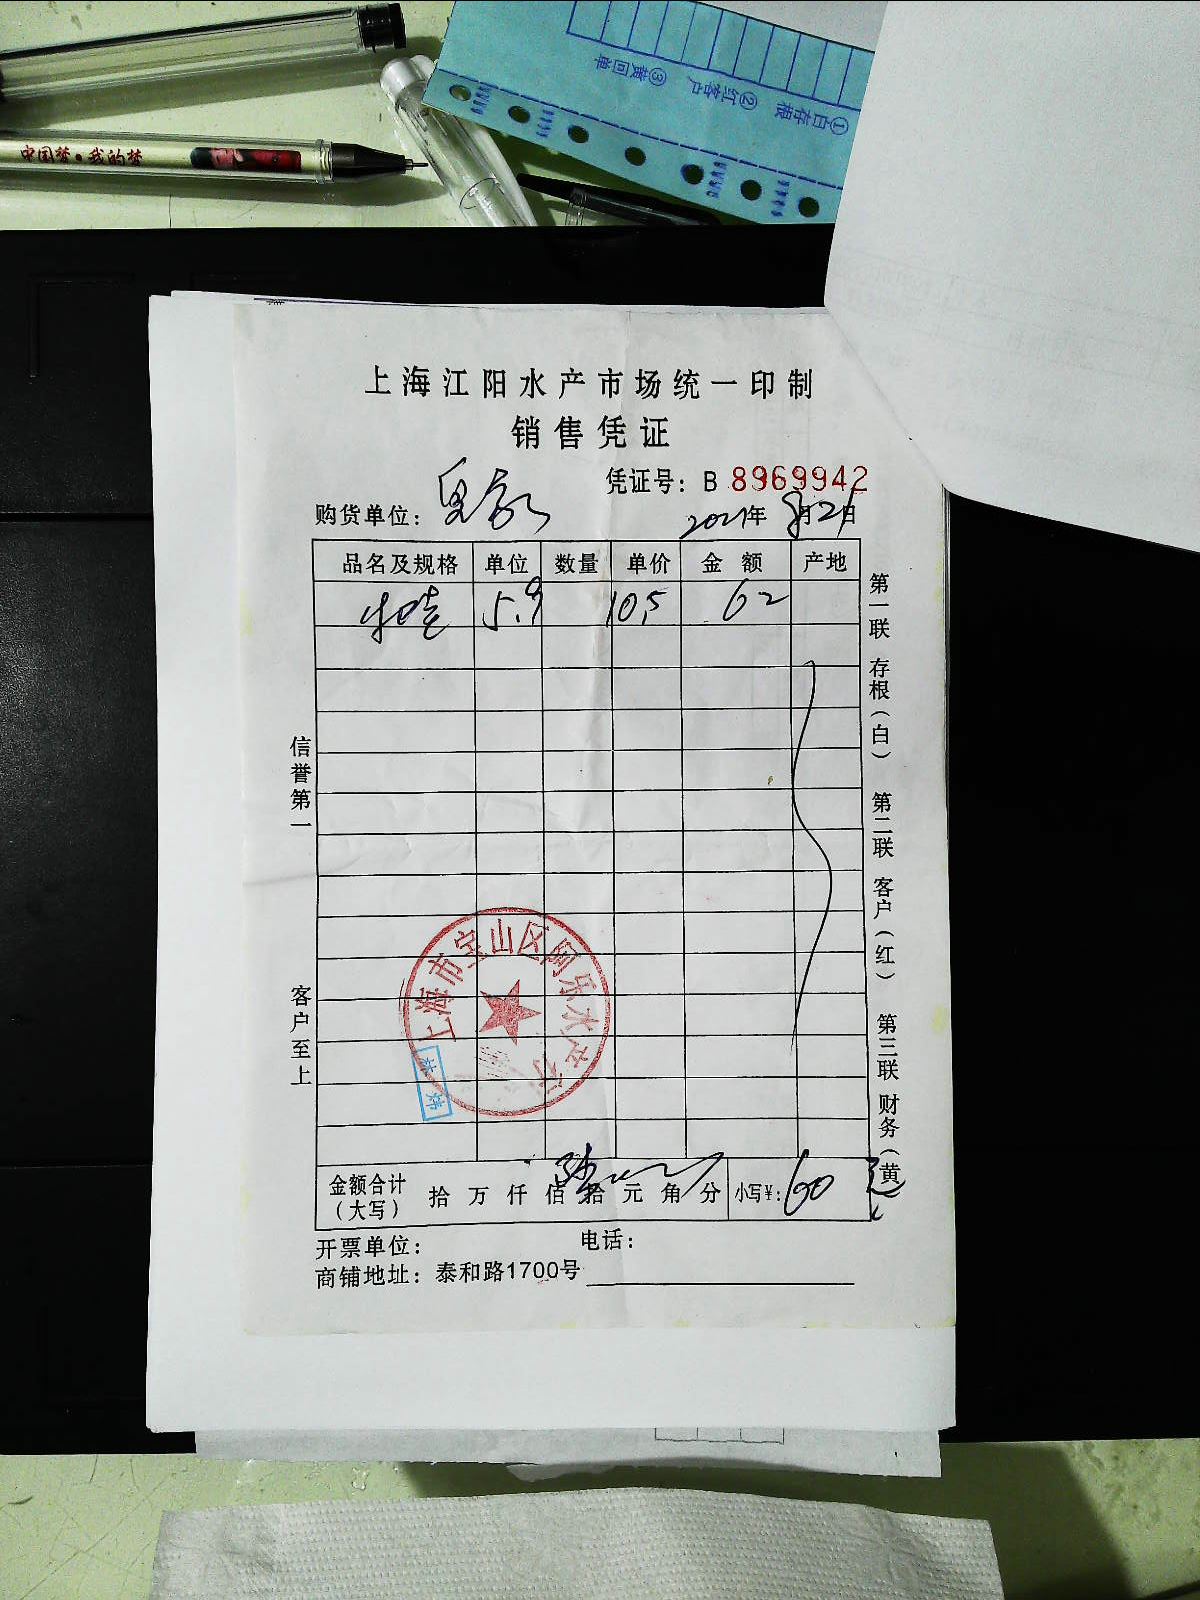 ①白存根 ②红客户 ③黄回单
中国梦·我的梦
上海江阳水产市场统一印制
销售凭证
凭证号: B 8969942
购货单位:
2021年 8月21日
品名及规格 单位 数量 单价 金额 产地
牛蛙 5.9 10.5 62
信誉第一 客户至上
第一联 存根（白） 第二联 客户（红） 第三联 财务（黄
上海市宝山区阿乐水产行
金额合计（大写） 拾 万 仟 佰 陆拾 元 角 分 小写¥: 60
开票单位: 电话:
商铺地址: 泰和路1700号